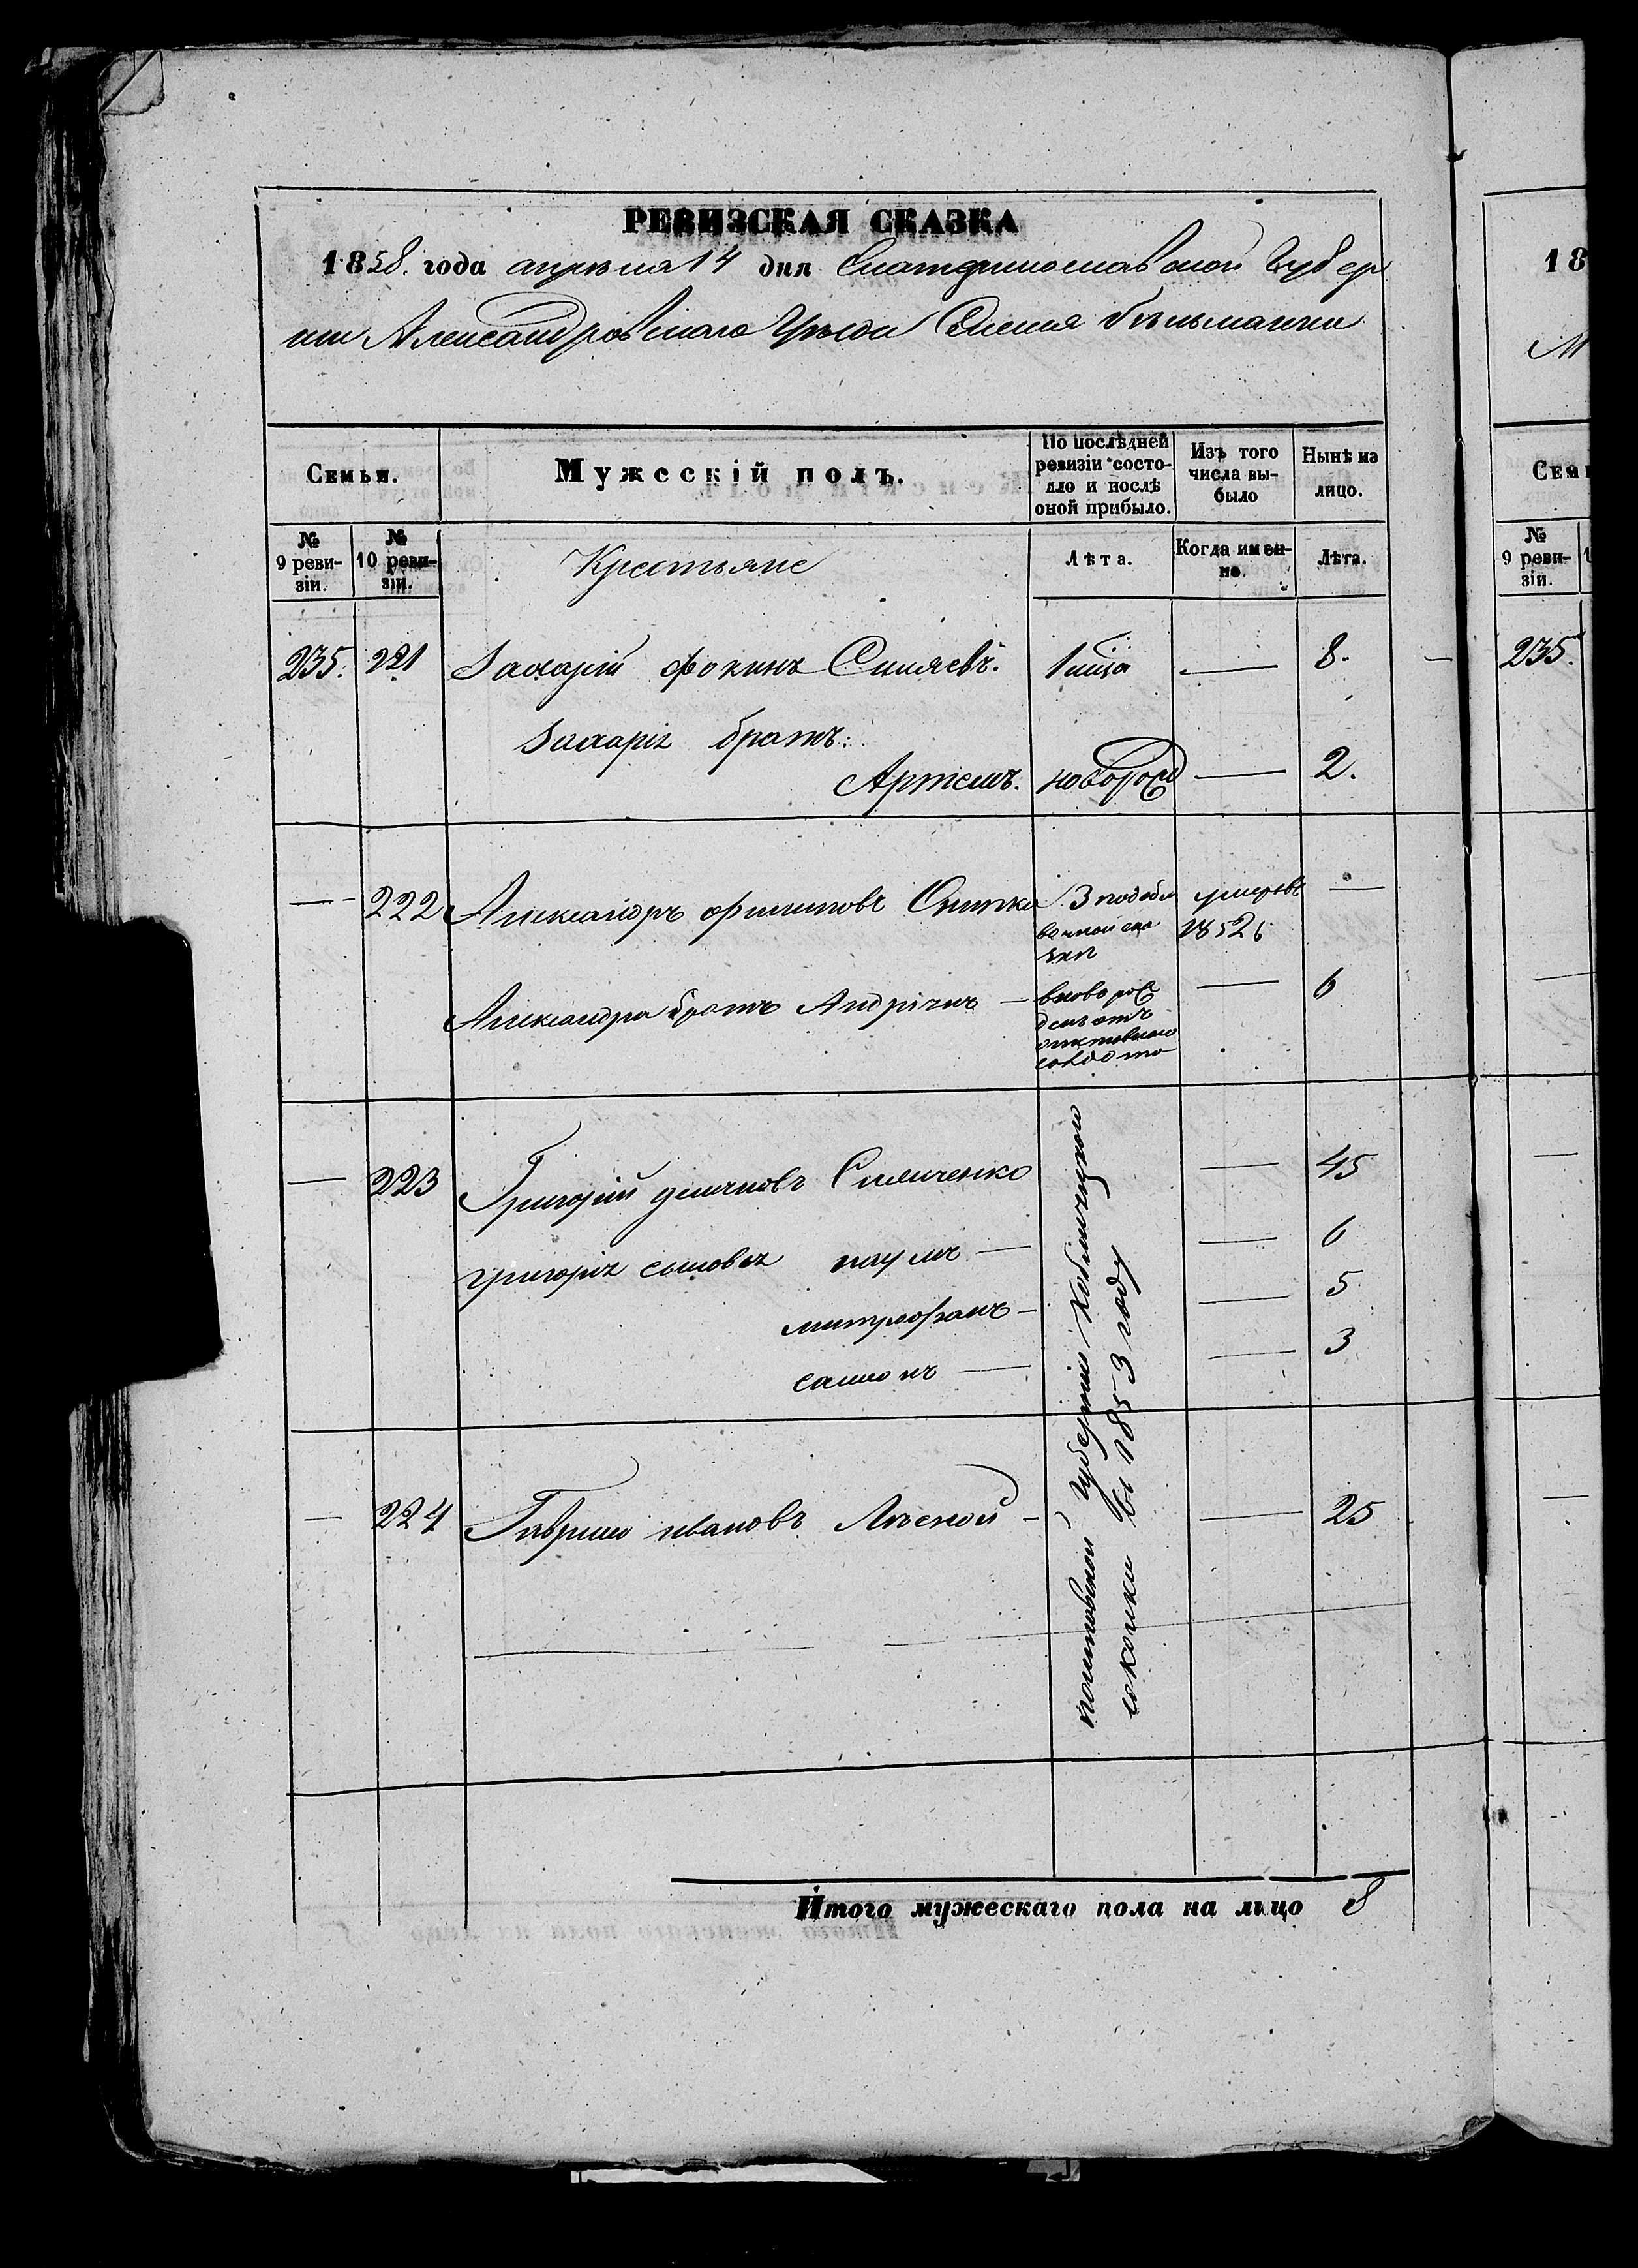 РЕВИЗСКАЯ СКАЗКА
1858. года апреля 14 дня Екатеринославской Губер
нии Александровскаго Уезда Селения Бельманки
Семьи.
Мужескій полъ.
По послѣдней ревизіи состояло и послѣ оной прибыло.
Изъ того числа выбыло
Нынѣ на лицо.
№ 9 ревизіи.
№ 10 ревизіи.
Крестьяне
Лѣта.
Когда именно.
Лѣта.
235. 221 Захарій Фокинъ Симаевъ. — 8.
Захарія братъ:
Артемъ. новорож — 2.
— 222 Александръ Филиповъ Снитко 3 умеръ —
1852
Александра братъ — вновь рож — 6
— 223 Григорій Симиченко — 45
Григорія сыновья наумъ — — 6
митрофанъ — — 5
самсонъ — — 3
— 224 Гаврило ивановъ Лесной — — 25
полтавской губерніи Кобыляцкаго
въ 1853 году
Итого мужескаго пола на лицо 8
18
М
Семь
№ 9 ревизіи.
1
235.